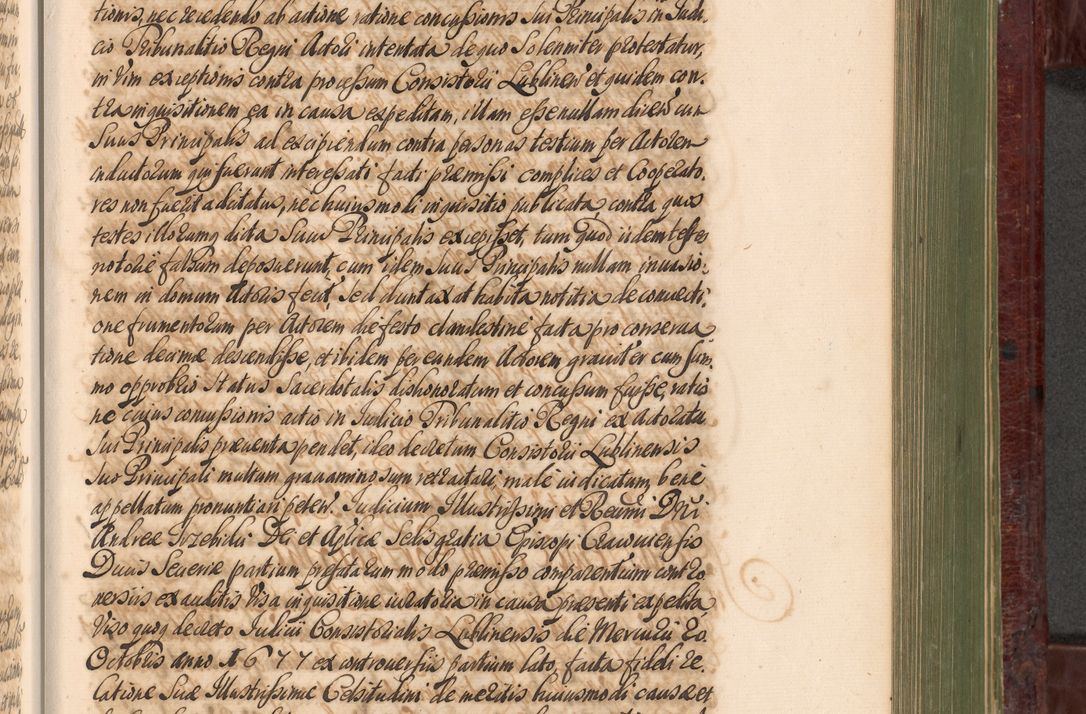 tionis, nec recedendo ab actione ratione concussionis sui Principalis in Judi.
cio Tribunalitio Regni Actori intentata de quo Solenniter protestatur,
in vim exceptionis contra processum Consistorii Lublinen et quidem con.
tra inquisitionem ea in causa expeditam, illam esse nullam dicen cum
Suus Principalis ad excipiendum contra personas testium per Actorem
inductorum qui fuerunt interessati facti præmissi complices et Coopera to.
res non fuerit adcitatus, nec huiusmodi inquisitio publicata, contra quos
testes illorumq dicta Suus Principalis excepisset, tum quod iidem testes
notorie falsum deposuerunt, cum idem Suus Principalis nullam invasio.
nem in domum Actoris fecit, sed duntaxat habita notitia de convecti.
one frumentorum per Actorem die festo clandestine facta pro conserva
tione decimæ descendisse, et ibidem per eundem Actorem graviter cum sum.
mo opprobrio Status Sacerdotalis dishonoratum et concussum fuisse, ratio
ne cuius concussionis actio in Iudicio Tribunalitio Regni ex Actoratu
Sui Principalis præventa pendet, ideo decretum Consistorii Lublinensis
Suo Principali multum gravaminosum retractari, male iudicatum, bene
appellatum pronuntiari peten. Judicium Illustrissimi et Reverendissimi Dni
Andreæ Trzebicki Dei et Aplicæ Sedis gratia Episcopi Cracoviensis
Ducis Severiæ partium præfatarum modo præmisso comparentium contro
versiis exauditis visa inquisitione iuratoria in causa præsenti expedita
Viso quoq decreto Iudicii Consistorialis Lublinensis die Mercurii 20.
Octobris anno 1677 ex controversiis partium lato, facta fideli re.
latione Suæ Illustrissimæ Celsitudini de meritis huiusmodi causæ et